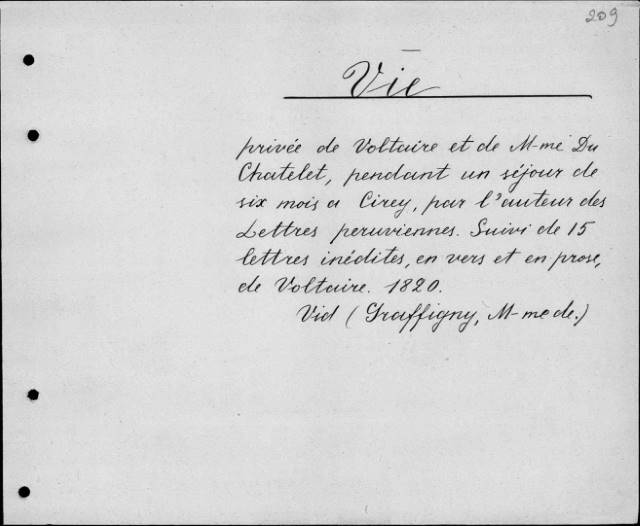 209
Vie
privée de Voltaire et de M-me Du
Chatelet, pendant un séjour de
six mois a Cirey, par l'auteur des
Lettres peruviennes. Suivi de 15
lettres inédites, en vers et en prose,
de Voltaire. 1820.
Vid (Graffigny, M-me de.)